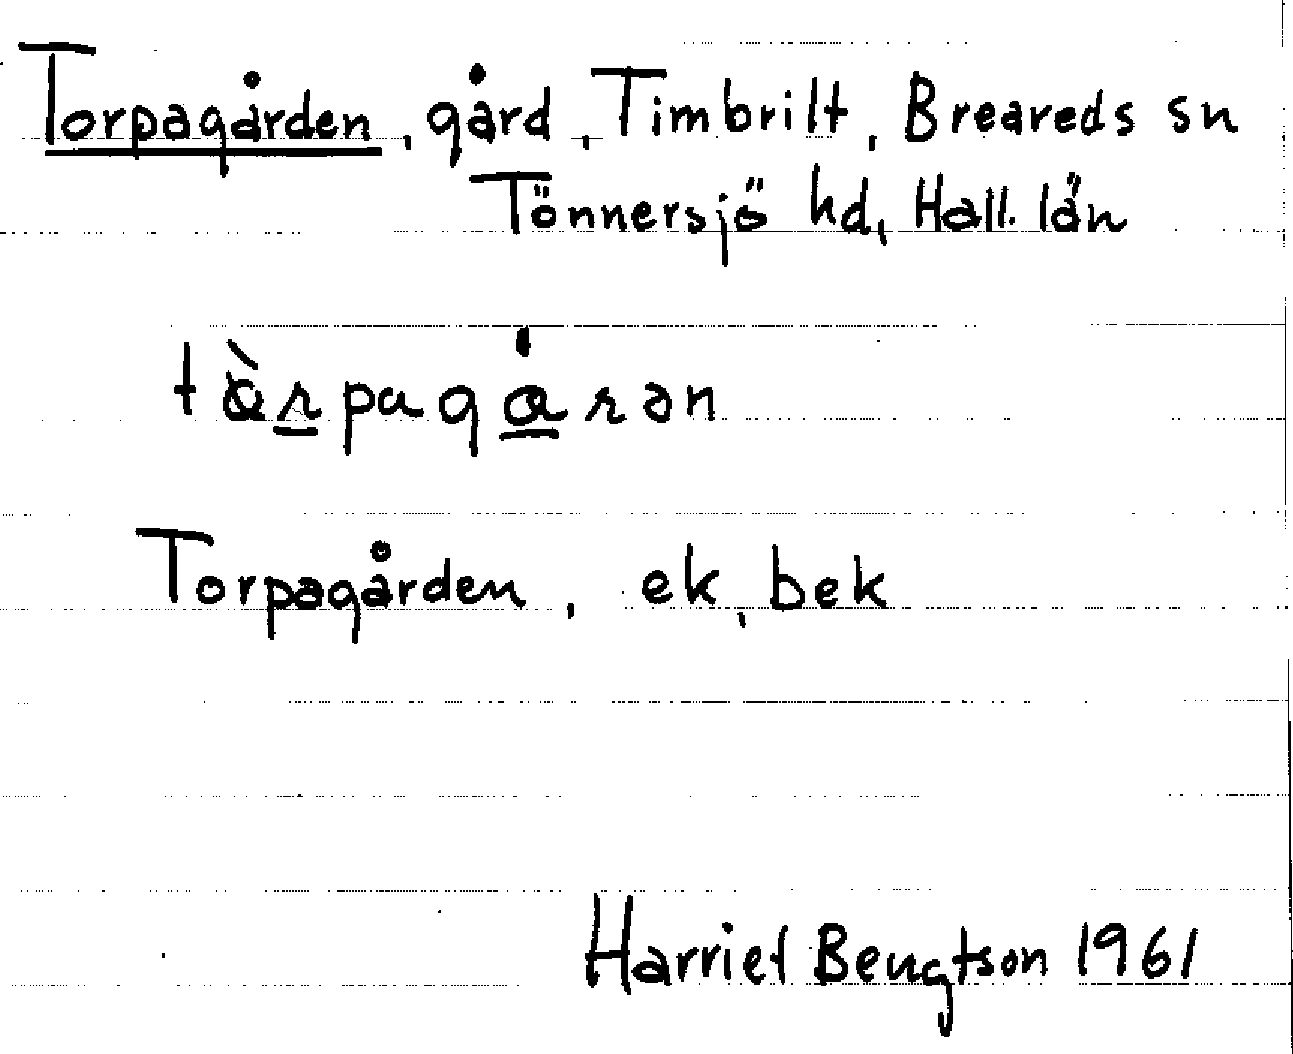 Torpagården, gård, Timbrilt, Breareds sn
Tönnersjö hd, Hall. län
tɷ̀rpagɑ́rən
Torpagården, ek, bek
Harriet Bengtson 1961